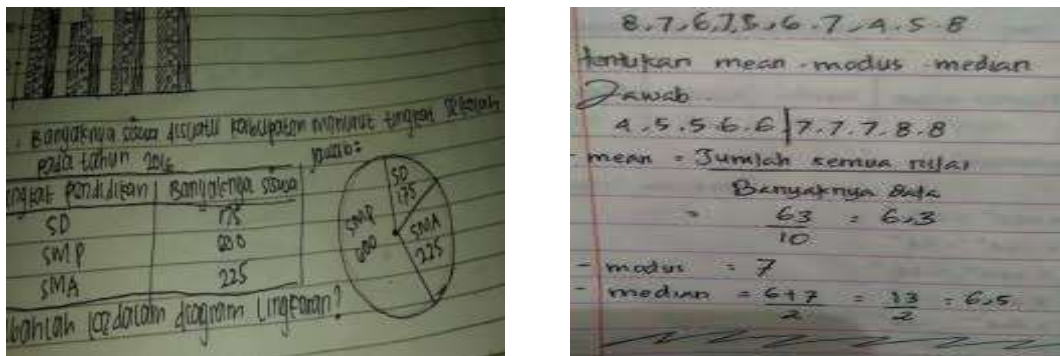 Banyaknya siswa disuatu kabupaten menurut tingkat sekolah
pada tahun
Jawab:
tingkat Pendidikan | Banyaknya siswa
SD 175
SMP 600
SMA 225
SD
175
SMP
600
SMA
225
kedalam diagram lingkaran?
8, 7, 6, 7, 5, 6, 7, 4, 5, 8
tentukan mean - modus - median
Jawab
4, 5, 5, 6, 6 | 7, 7, 7, 8, 8
- mean = Jumlah semua nilai
Banyaknya data
= 63 = 6,3
10
- modus = 7
- median = 6+7 = 13 = 6,5
2 2